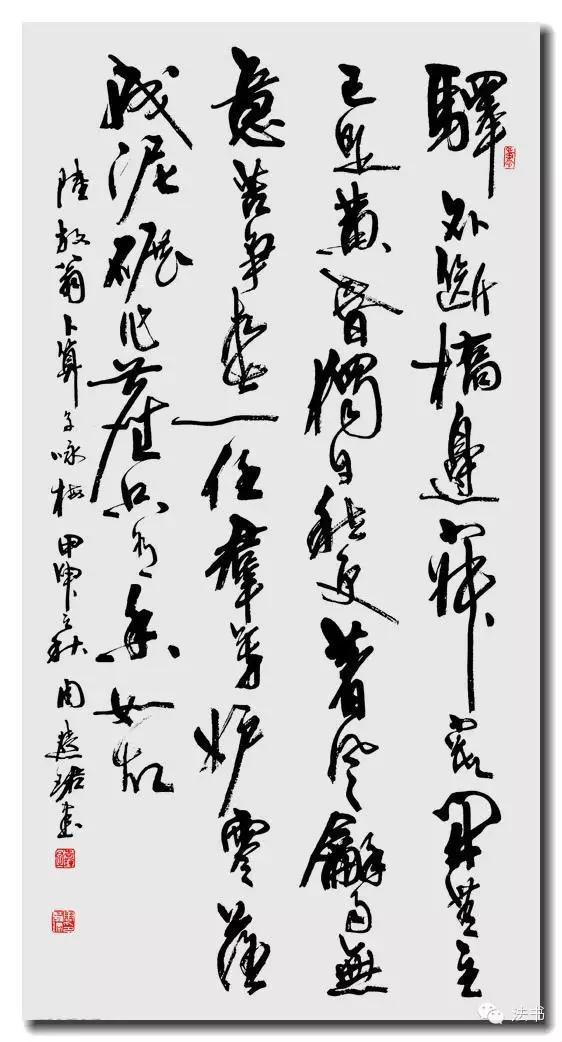 驛外斷橋邊寂寞開無主
已是黃昏獨自愁更著風龢雨無
意苦爭春一任羣芳妒零落
成泥碾作塵只有香如故
陸放翁卜算子咏梅甲申之秋周慧珺書
法书